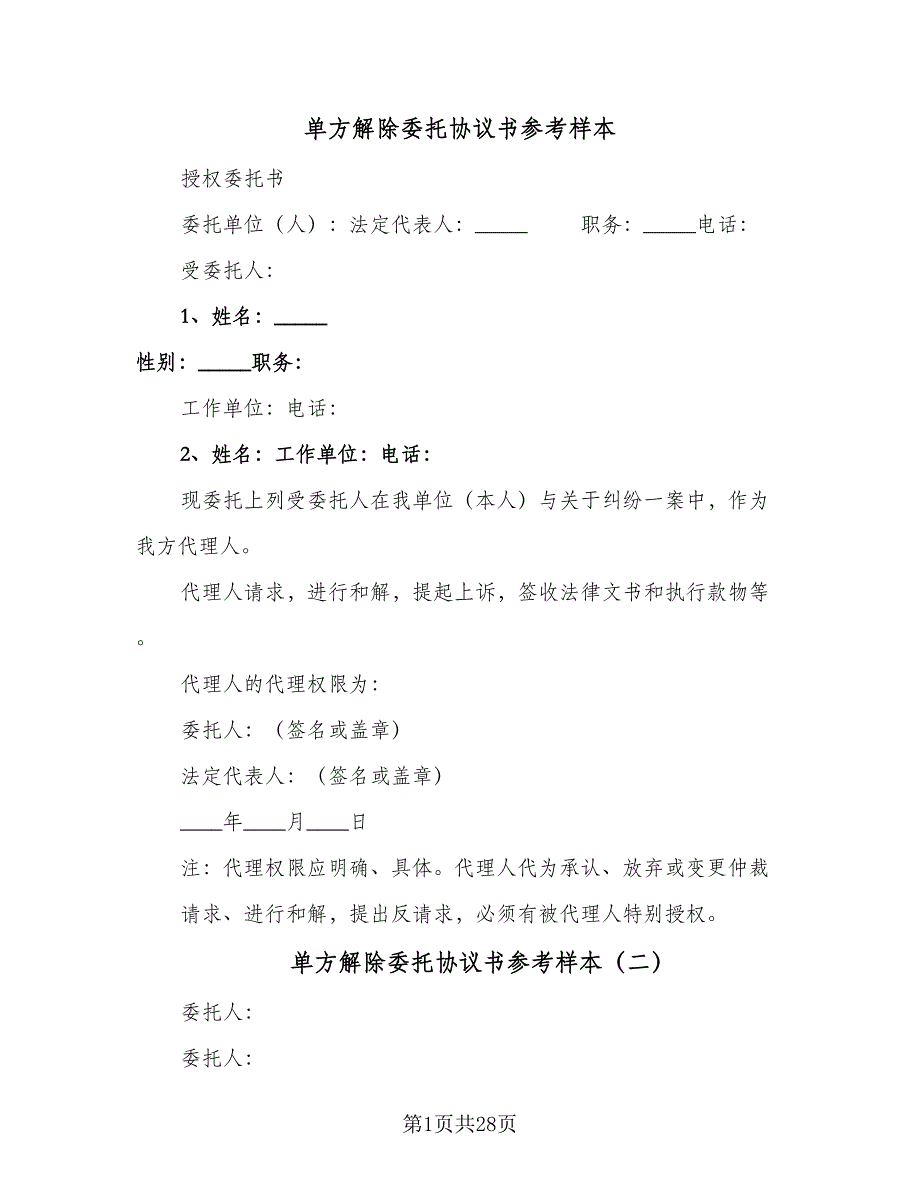 单方解除委托协议书参考样本
授权委托书
委托单位（人）：法定代表人：_____ 职务：_____电话：
受委托人：
1、姓名：_____
性别：_____职务：
工作单位：电话：
2、姓名：工作单位：电话：
现委托上列受委托人在我单位（本人）与关于纠纷一案中，作为
我方代理人。
代理人请求，进行和解，提起上诉，签收法律文书和执行款物等
。
代理人的代理权限为：
委托人：（签名或盖章）
法定代表人：（签名或盖章）
____年____月____日
注：代理权限应明确、具体。代理人代为承认、放弃或变更仲裁
请求、进行和解，提出反请求，必须有被代理人特别授权。
单方解除委托协议书参考样本（二）
委托人：
委托人：
第1页共28页